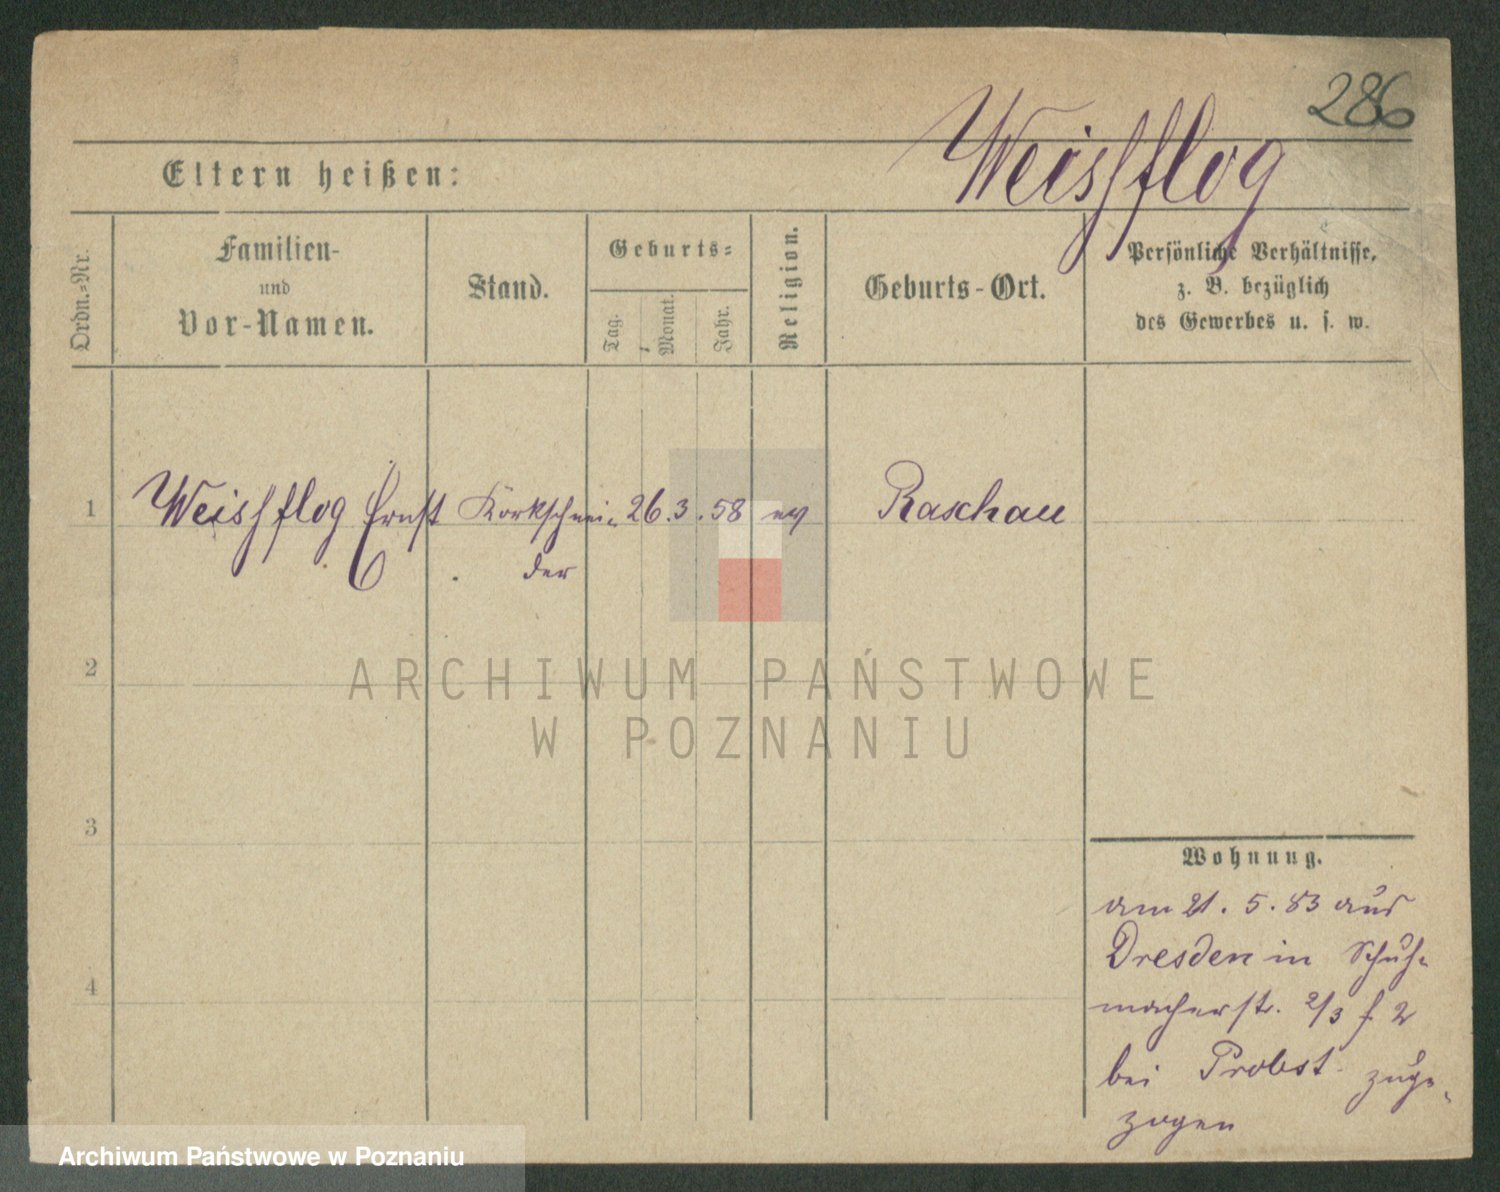 286
Weishflog
Eltern heißen:
Ordn.-Nr.
Familien-
und
Vor-Namen.
Stand.
Geburts-
Tag.
Monat.
Jahr.
Religion.
Geburts-Ort.
Persönliche Verhältnisse,
z. B. bezüglich
des Gewerbes u. s. w.
1 Weishflog Ernst Korkschnei- 26.3.58 ev Raschau
der
2
3
4
ARCHIWUM PAŃSTWOWE
W POZNANIU
Wohnung.
am 21. 5. 83 aus
Dresden in Schuh-
macherstr. 2/3 f 2
bei Probst zuge-
zogen
Archiwum Państwowe w Poznaniu